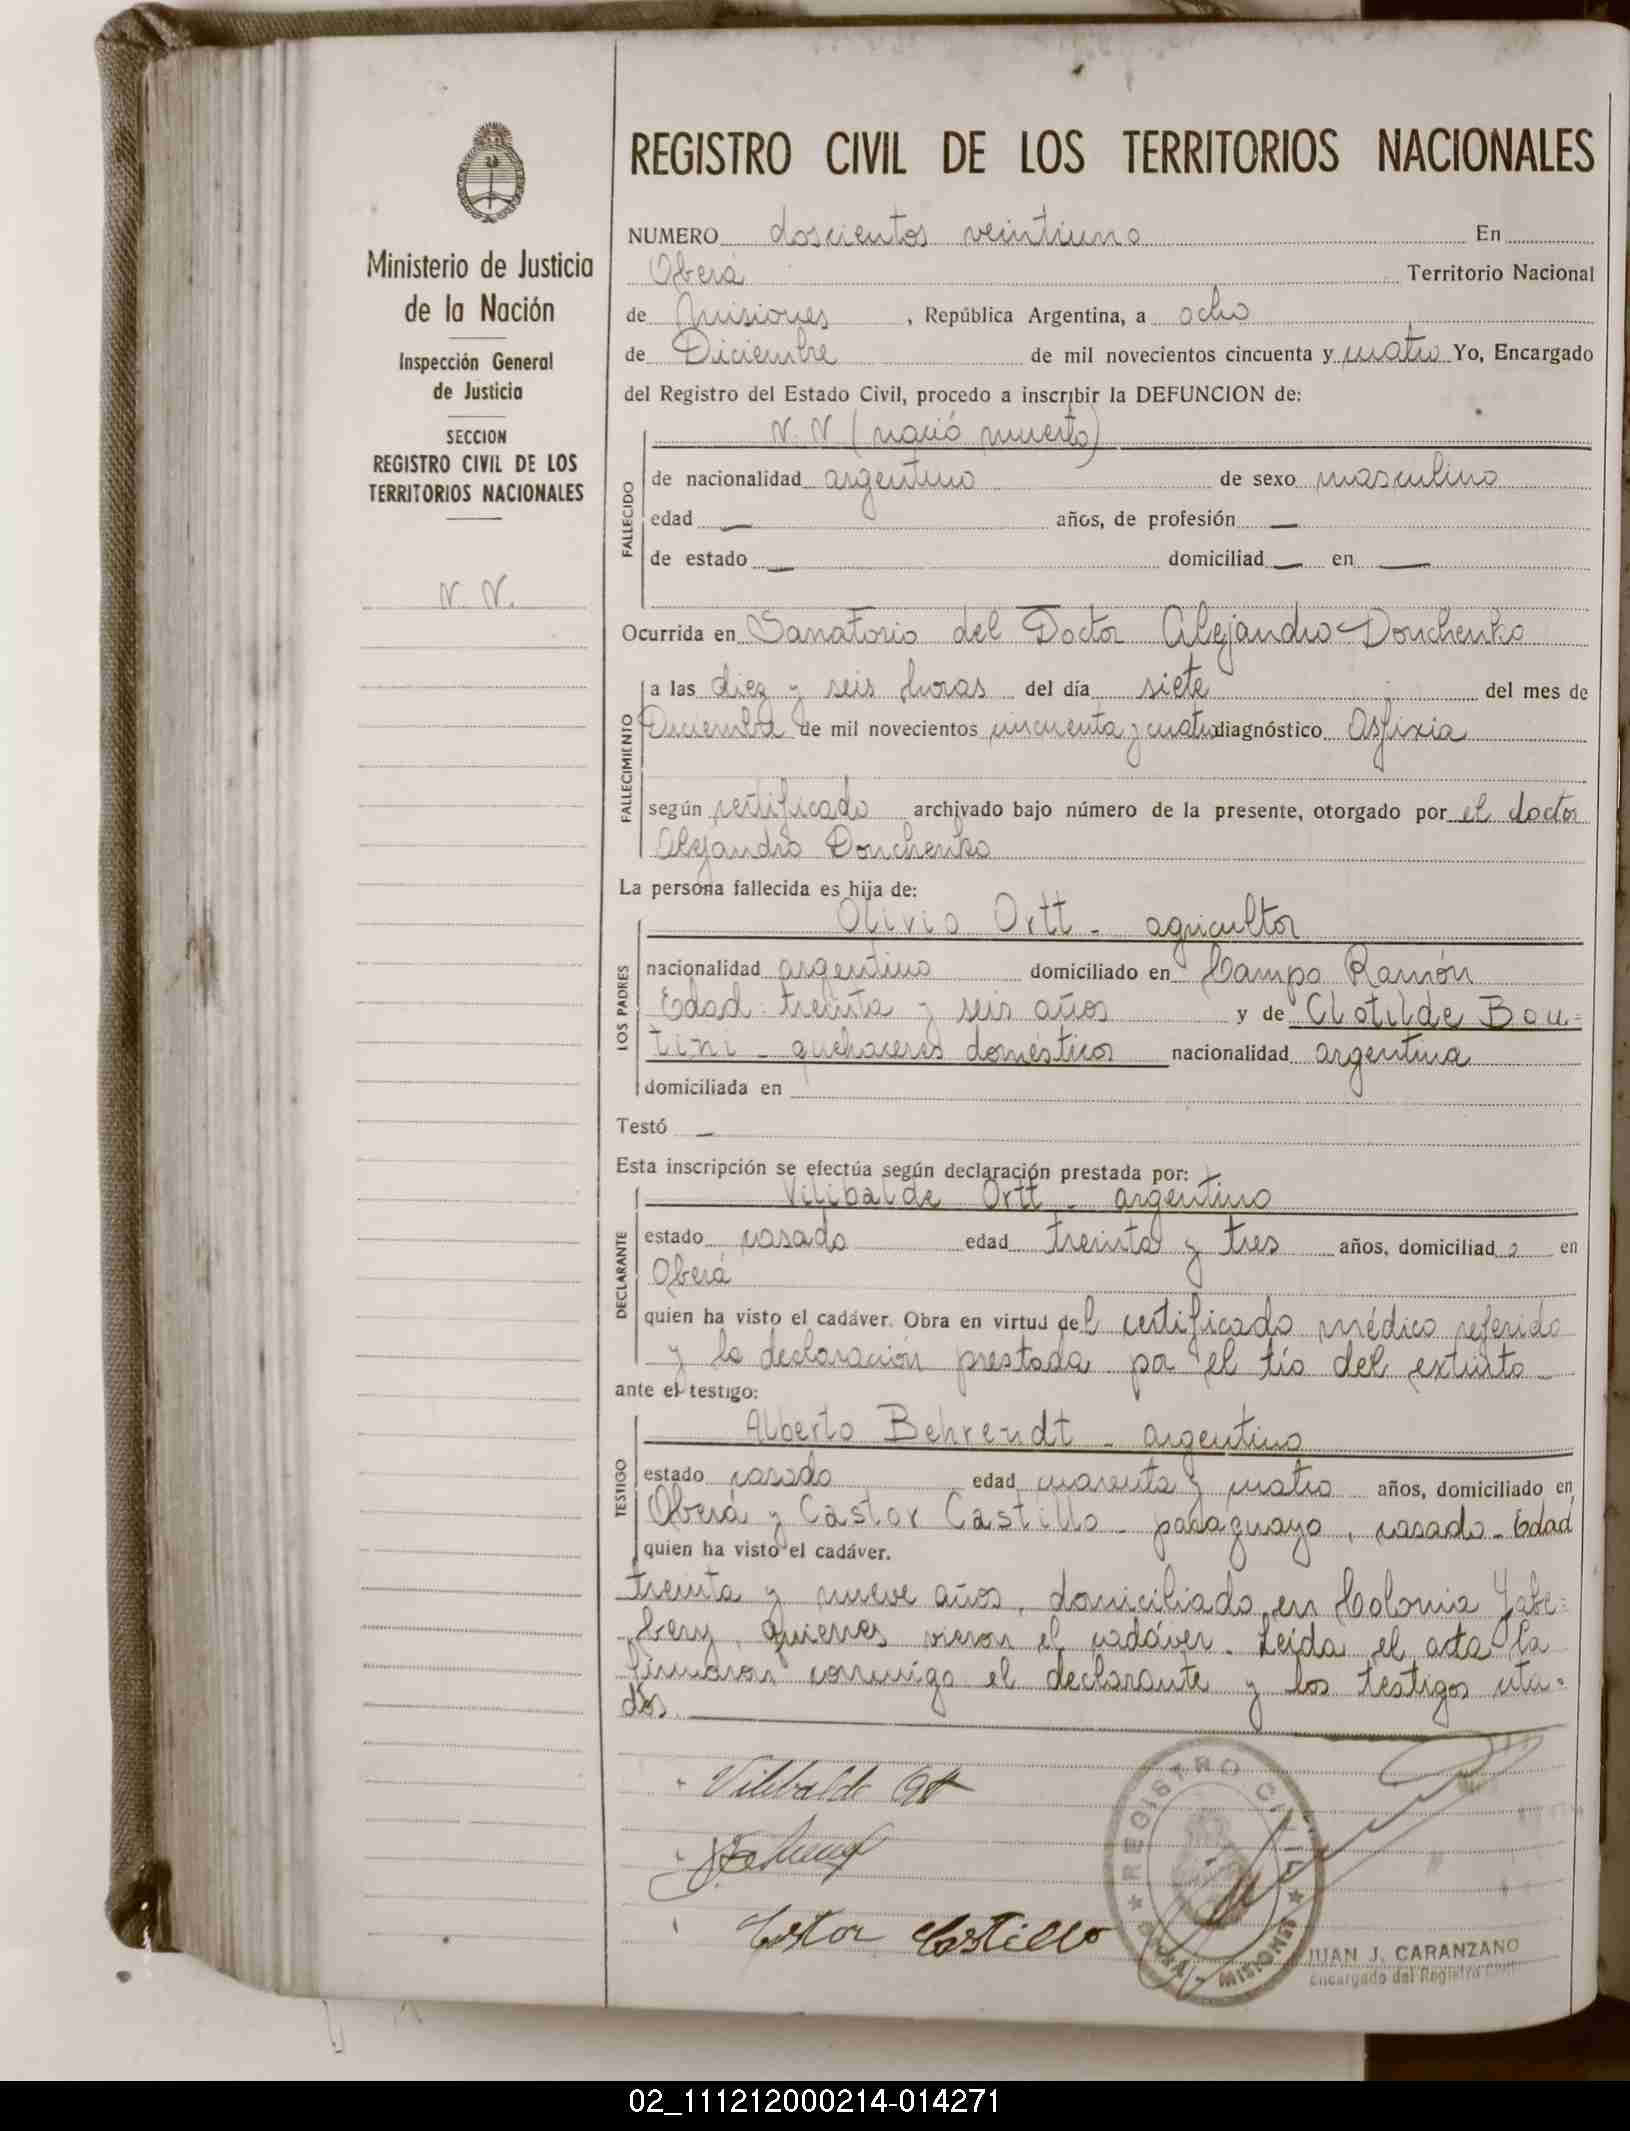 REGISTRO CIVIL DE LOS TERRITORIOS NACIONALES
Ministerio de Justicia
de la Nación
Inspección General
de Justicia
SECCION
REGISTRO CIVIL DE LOS
TERRITORIOS NACIONALES
N. N.
NUMERO doscientos veintiuno En
Oberá Territorio Nacional
de Misiones , República Argentina, a ocho
de Diciembre de mil novecientos cincuenta y cuatro Yo, Encargado
del Registro del Estado Civil, procedo a inscribir la DEFUNCION de:
N. N (nació muerto)
FALLECIDO
de nacionalidad argentino de sexo masculino
edad — años, de profesión —
de estado — domiciliad — en —
Ocurrida en Sanatorio del Doctor Alejandro Donchenko
FALLECIMIENTO
a las diez y seis horas del día siete del mes de
Diciembre de mil novecientos cincuenta y cuatro diagnóstico Asfixia
según certificado archivado bajo número de la presente, otorgado por el doctor
Alejandro Donchenko
La persona fallecida es hija de:
LOS PADRES
Olivio Ortt - agricultor
nacionalidad argentino domiciliado en Campo Ramón
Edad: treinta y seis años y de Clotilde Bou=
tini - quehaceres domésticos nacionalidad argentina
domiciliada en
Testó —
Esta inscripción se efectúa según declaración prestada por:
DECLARANTE
Vilibalde Ortt - argentino
estado casado edad treinta y tres años, domiciliad o en
Oberá
quien ha visto el cadáver. Obra en virtud del certificado médico referido
y la declaración prestada por el tío del extinto -
ante el testigo:
TESTIGO
Alberto Behrendt - argentino
estado casado edad cuarenta y cuatro años, domiciliado en
Oberá y Castor Castillo - paraguayo, casado - Edad
quien ha visto el cadáver.
treinta y nueve años, domiciliado en Colonia Yabe=
bery, quienes vieron el cadáver. Leída el acta la
firmaron conmigo el declarante y los testigos cita=
dos
Vilibalde Ortt
Castor Castillo
REGISTRO CIVIL
OBERA - MISIONES
JUAN J. CARANZANO
Encargado del Registro Civil
02_111212000214-014271